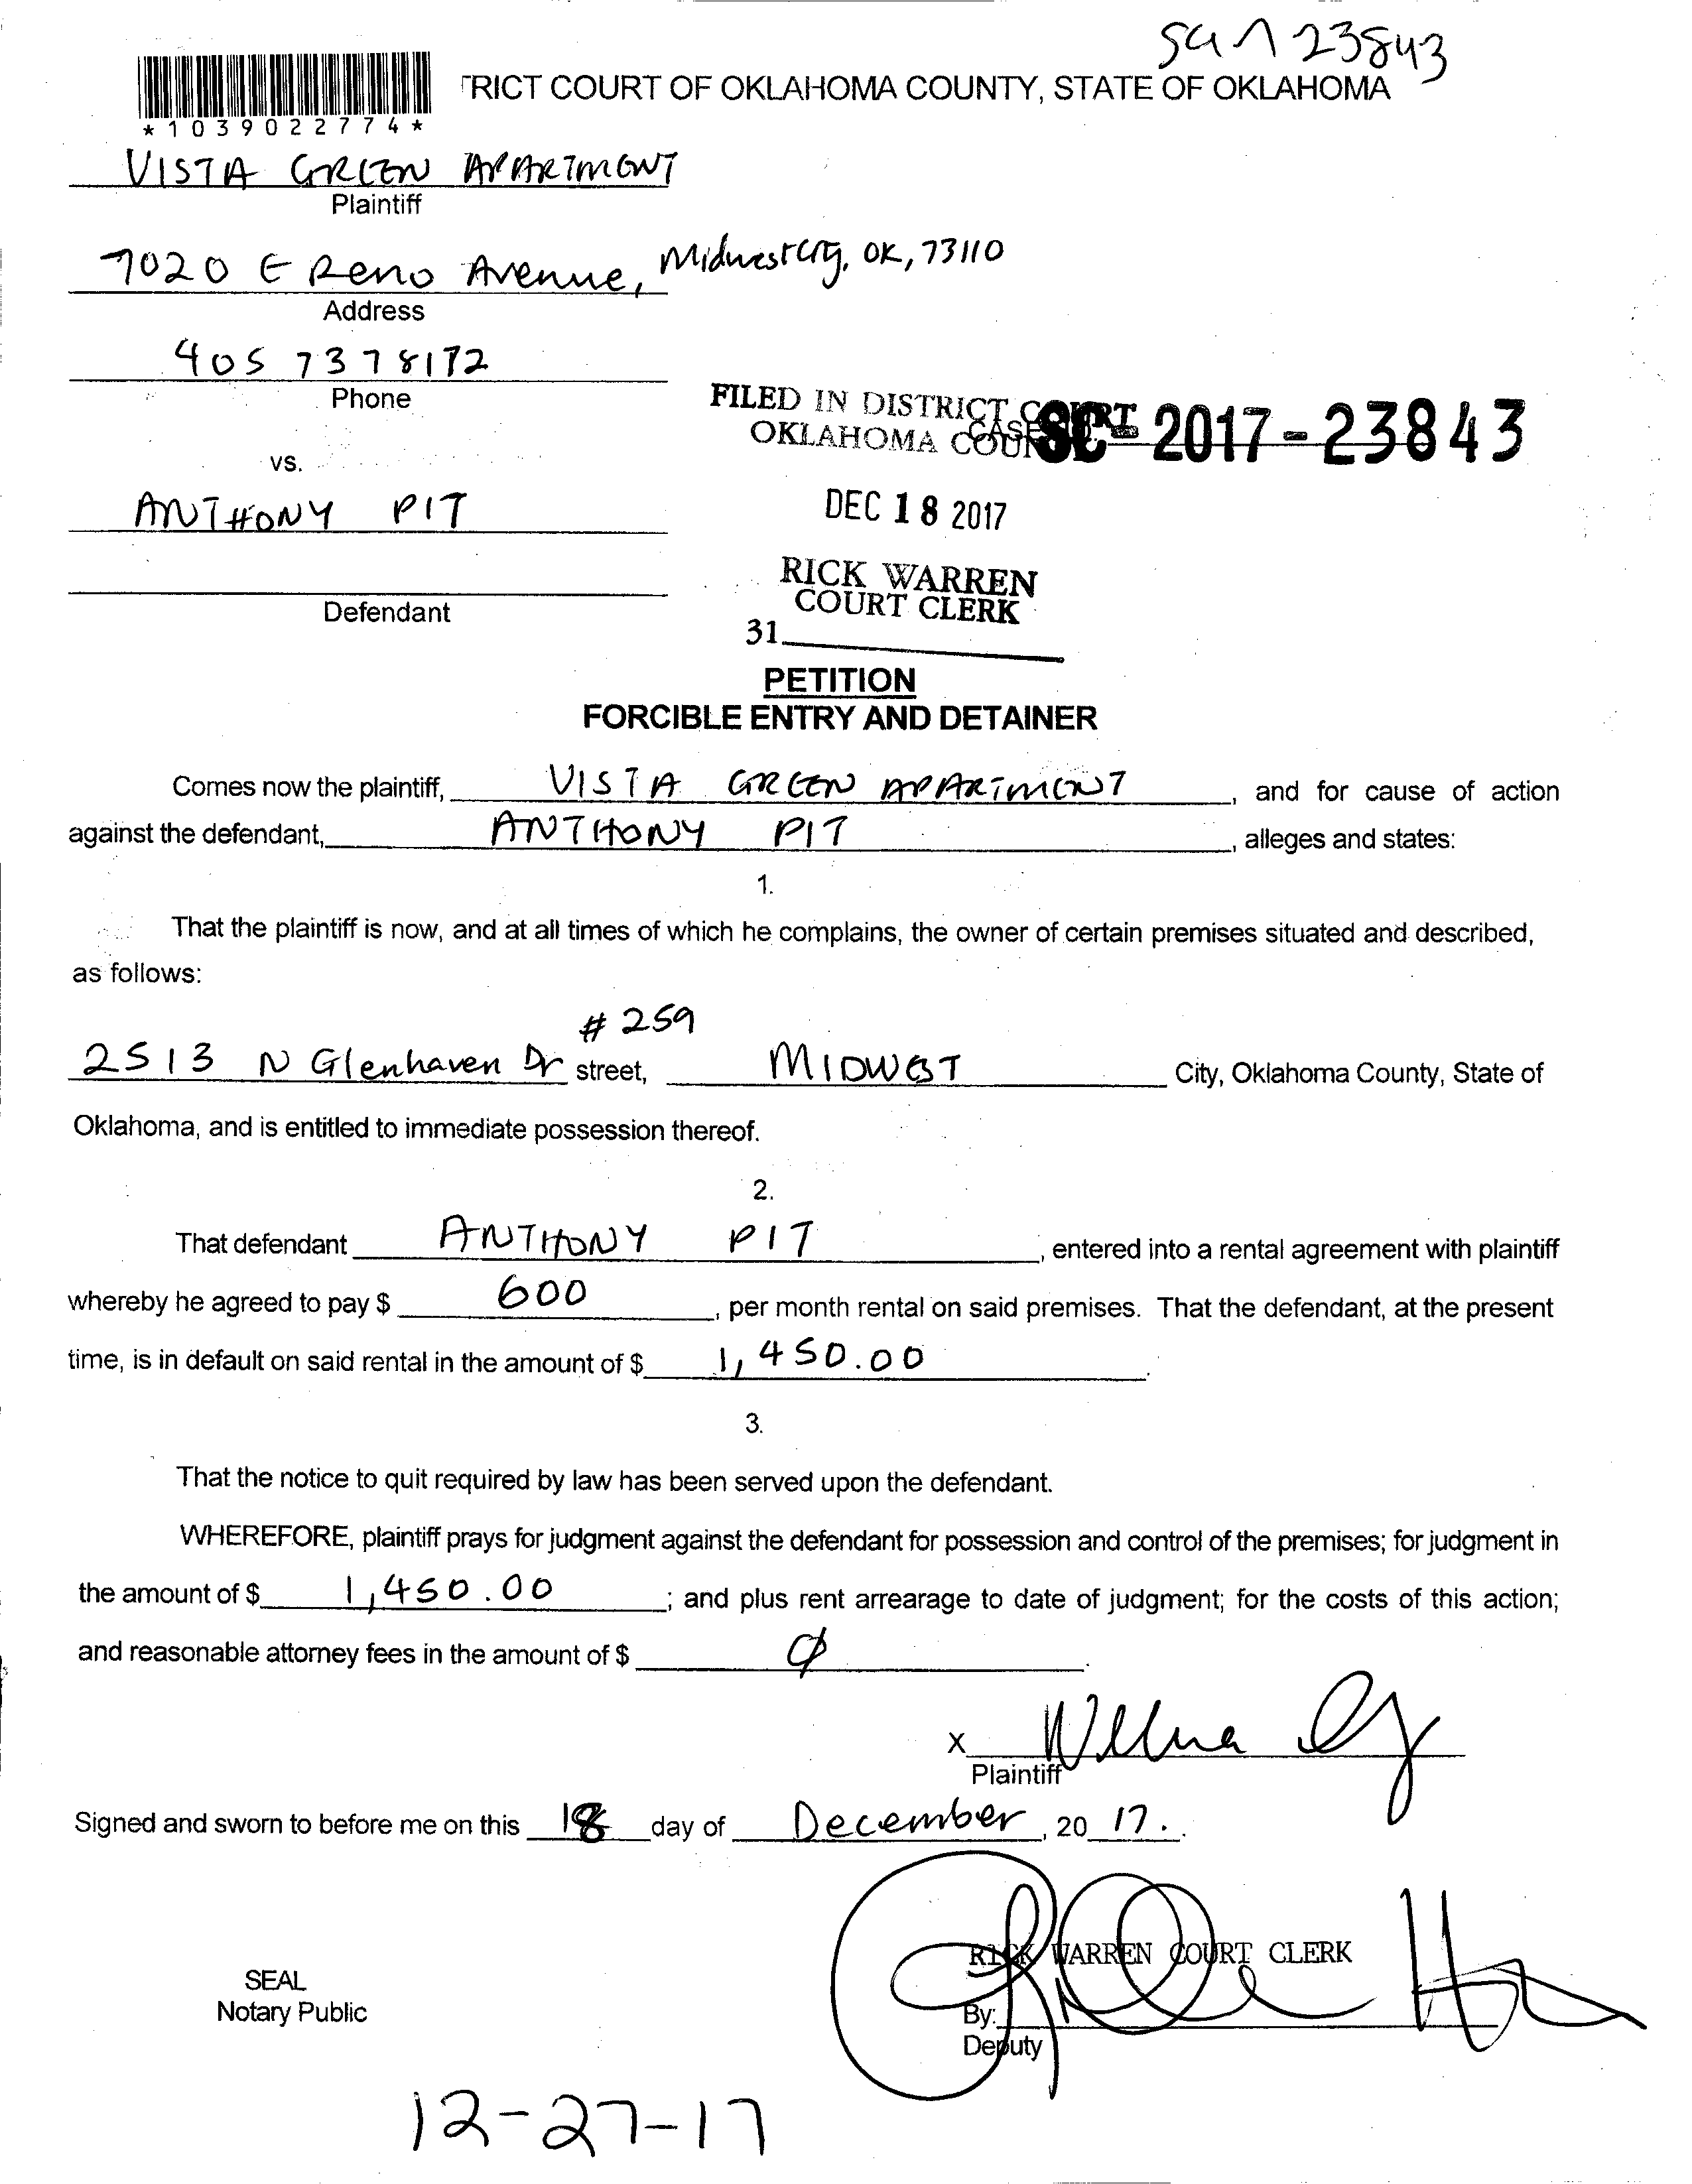 23843
TRICT COURT OF OKLAHOMA COUNTY, STATE OF OKLAHOMA
*1039022774*
VISTA GREEN APARTMENT
Plaintiff
7020 E Reno Avenue, Midwest City, OK, 73110
Address
405 737 8172
Phone
FILED IN DISTRICT COURT
OKLAHOMA COUN
CASE
SC- 2017-23843
vs.
DEC 18 2017
ANTHONY PIT
RICK WARREN
COURT CLERK
Defendant
31
PETITION
FORCIBLE ENTRY AND DETAINER
Comes now the plaintiff, VISTA GREEN APARTMENT, and for cause of action
against the defendant, ANTHONY PIT, alleges and states:
1.
That the plaintiff is now, and at all times of which he complains, the owner of certain premises situated and described,
as follows:
#259
2513 N Glenhaven Dr street, MIDWEST City, Oklahoma County, State of
Oklahoma, and is entitled to immediate possession thereof.
2.
That defendant ANTHONY PIT, entered into a rental agreement with plaintiff
whereby he agreed to pay $ 600, per month rental on said premises. That the defendant, at the present
time, is in default on said rental in the amount of $ 1,450.00.
3.
That the notice to quit required by law has been served upon the defendant.
WHEREFORE, plaintiff prays for judgment against the defendant for possession and control of the premises; for judgment in
the amount of $ 1,450.00; and plus rent arrearage to date of judgment; for the costs of this action;
and reasonable attorney fees in the amount of $ Ø.
X
Plaintiff
Signed and sworn to before me on this 18 day of December, 20 17.
RICK WARREN COURT CLERK
SEAL
Notary Public
By:
Deputy
12-27-17